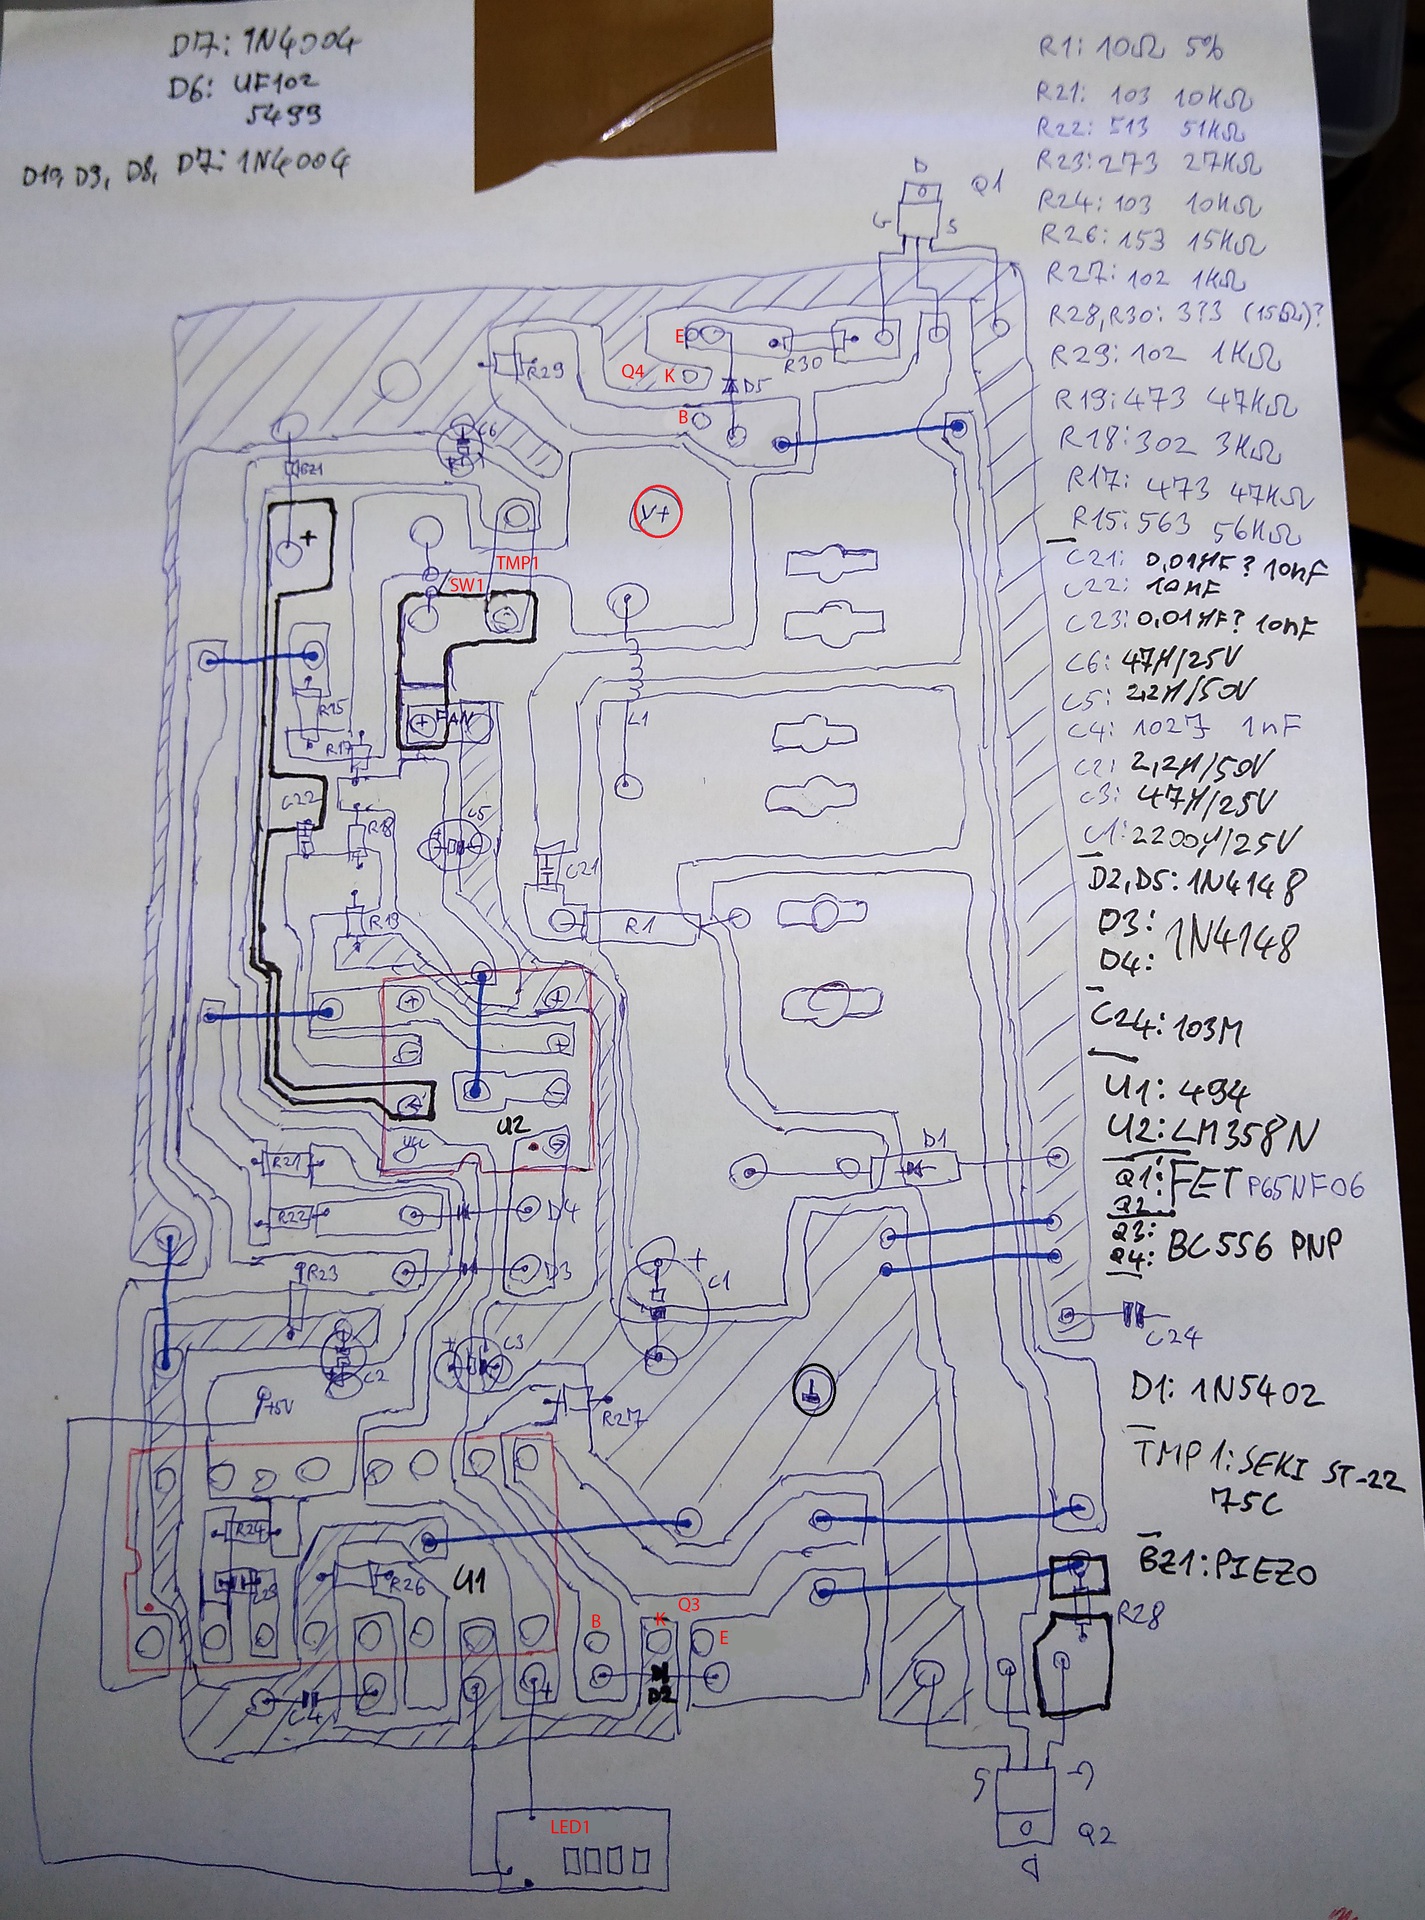 D7: 1N4004
D6: UF102
5499
D10, D9, D8, D7: 1N4004
R1: 10Ω 5%
R21: 103 10KΩ
R22: 513 51KΩ
R23: 273 27KΩ
R24: 103 10KΩ
R26: 153 15KΩ
R27: 102 1KΩ
R28, R30: 3?3 (15Ω)?
R29: 102 1KΩ
R19: 473 47KΩ
R18: 302 3KΩ
R17: 473 47KΩ
R15: 563 56KΩ
C21: 0,01µF? 10nF
C22: 10nF
C23: 0,01µF? 10nF
C6: 47µ/25V
C5: 2,2µ/50V
C4: 102J 1nF
C2: 2,2µ/50V
C3: 47µ/25V
C1: 2200µ/25V
D2, D5: 1N4148
D3: 1N4148
D4:
C24: 103M
U1: 494
U2: LM358N
Q1: FET P65NF06
Q2:
Q3: BC556 PNP
Q4:
D1: 1N5402
TMP1: SEKI ST-22
75C
BZ1: PIEZO
D
Q1
G S
E
R30
R29
Q4 K
D5
B
C6
BZ1
V+
+
TMP1
SW1
L1
R15
+ FAN
R17
C22
R18
C5
C21
R19
R1
+ +
- +
U2
D1
R21
R22
D4
R23
D3
+
C1
C3
C2
C24
+5V
R27
R24
R26
U1
Q3
B K E
R28
D1
D2
C4
S
Q2
D
LED1